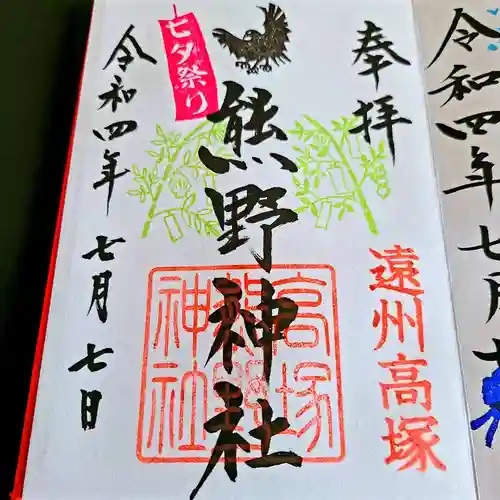 奉拝
遠州高塚
熊野神社
高塚
熊野
神社
七夕祭り
令和四年
七月七日
令和四年七月